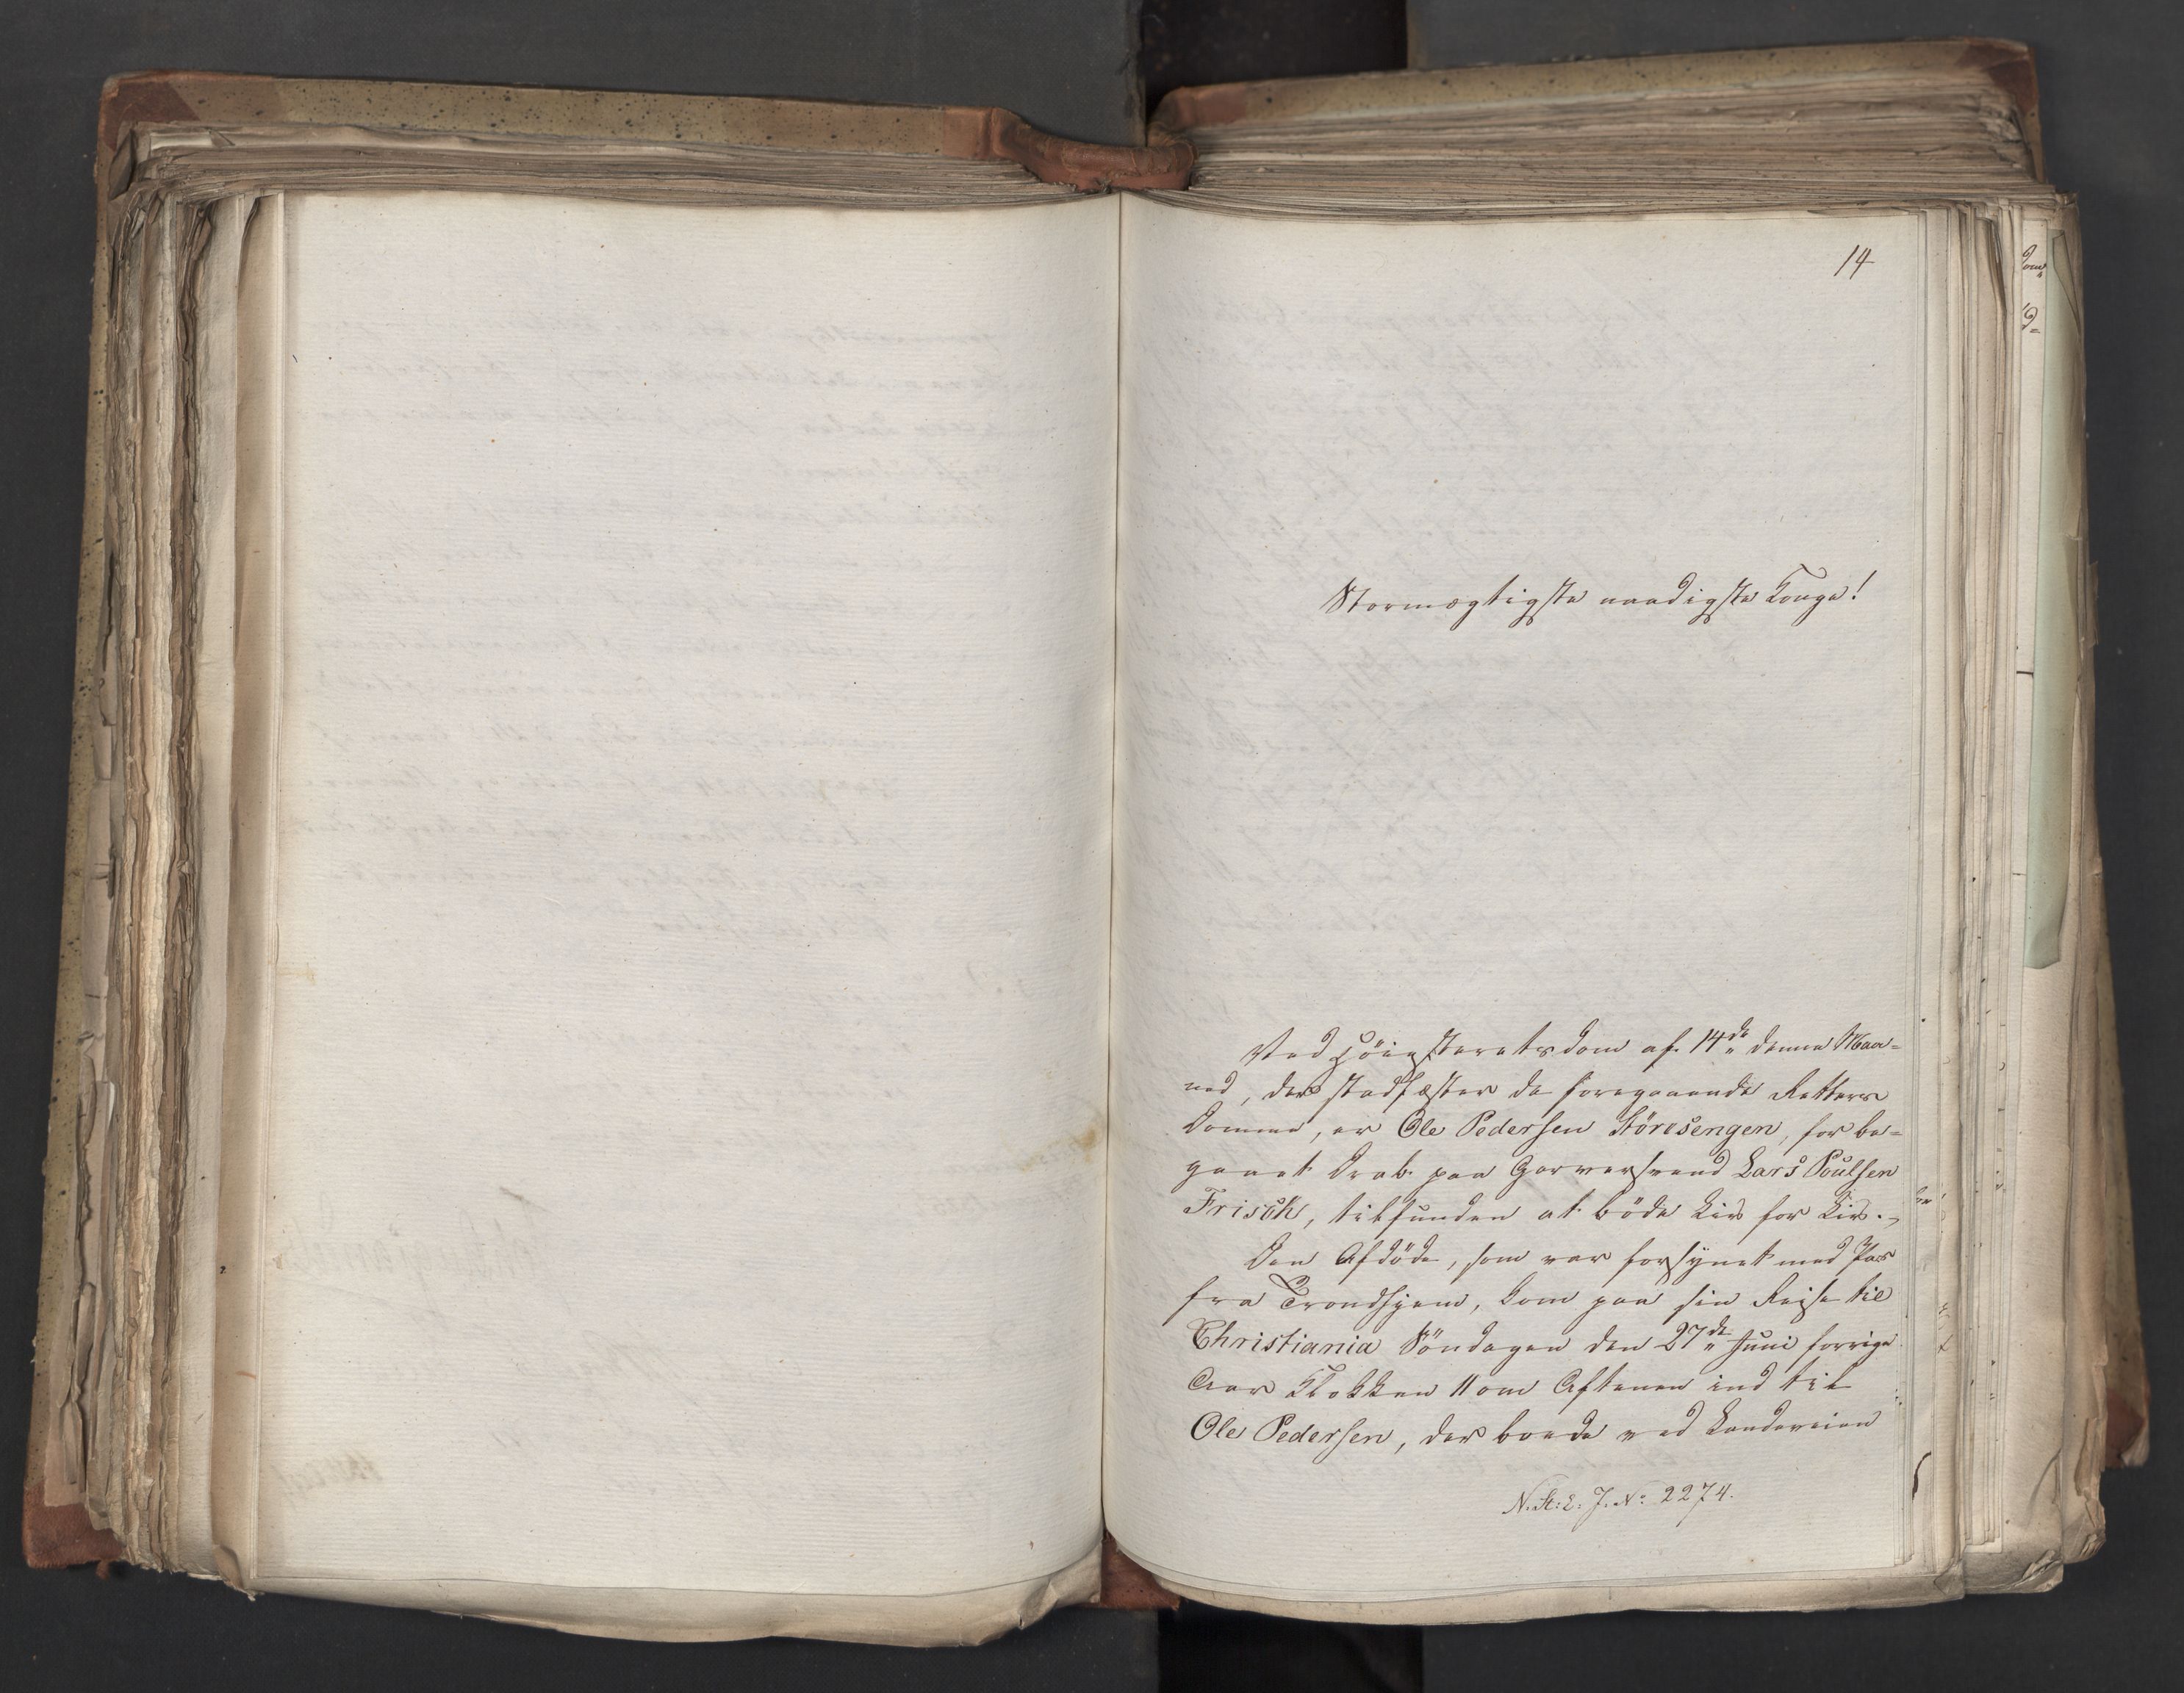 14
Stormægtigste naadigste Konge!
Ved Höiesteretsdom af 14de denne Maa=
ned, der stadfæster de foregaaende Retters
Domme, er Ole Pedersen Störesengen, for be=
gaaet Drab paa Garversvend Lars Poulsen
Frisch, tilfunden at böde Liv for Liv.
Den Afdöde, som var forsynet med Pas
fra Trondhjem, kom paa sin Reise til
Christiania Söndagen den 27de Juni forrige
Aar Klokken 11 om Aftenen ind til
Ole Pedersen, der boede ved Landeveien
N. St: E. J. No: 2274.